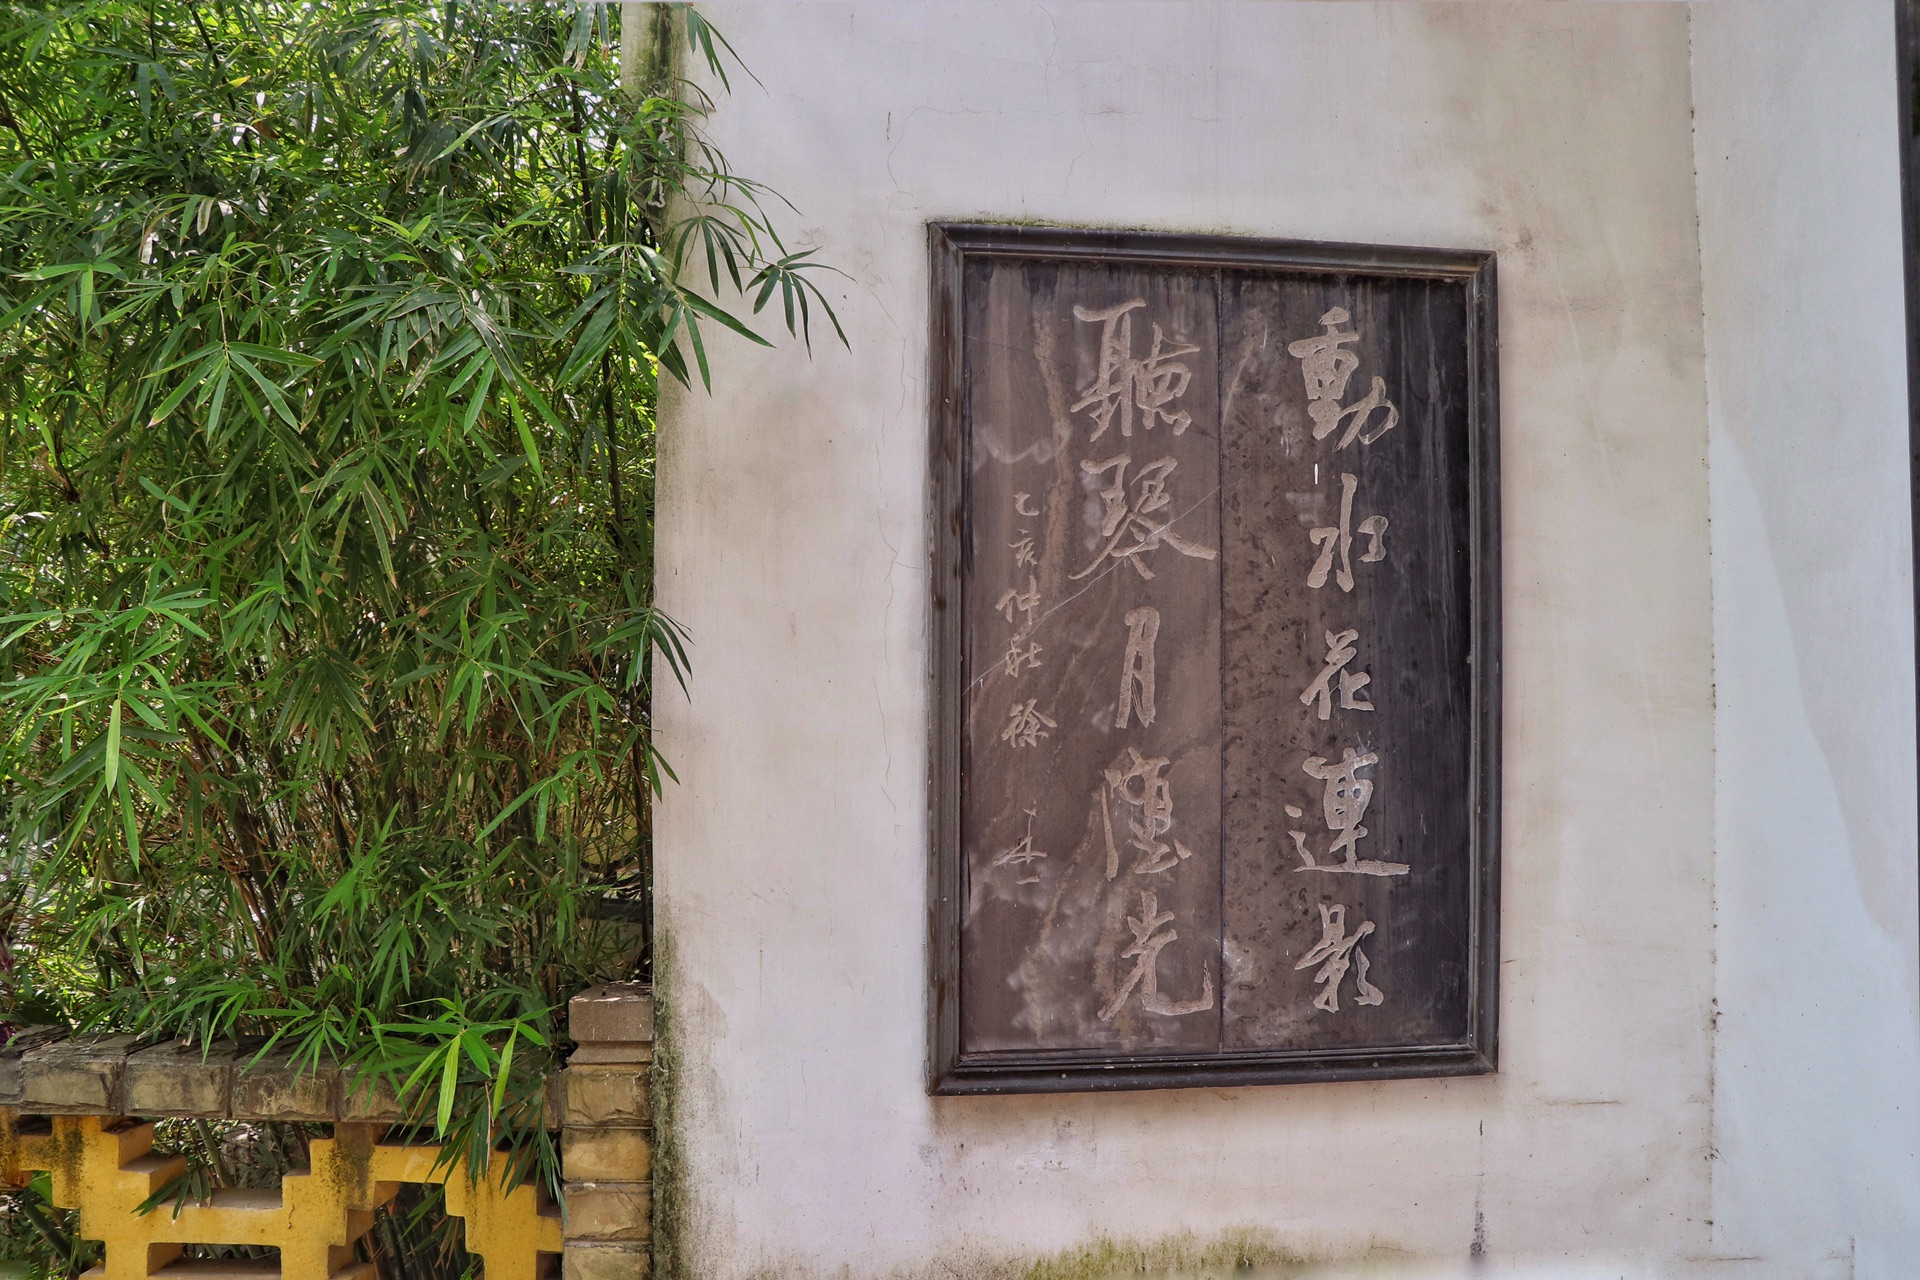 動水花連影
聽琴月隱光
乙亥仲秋徐